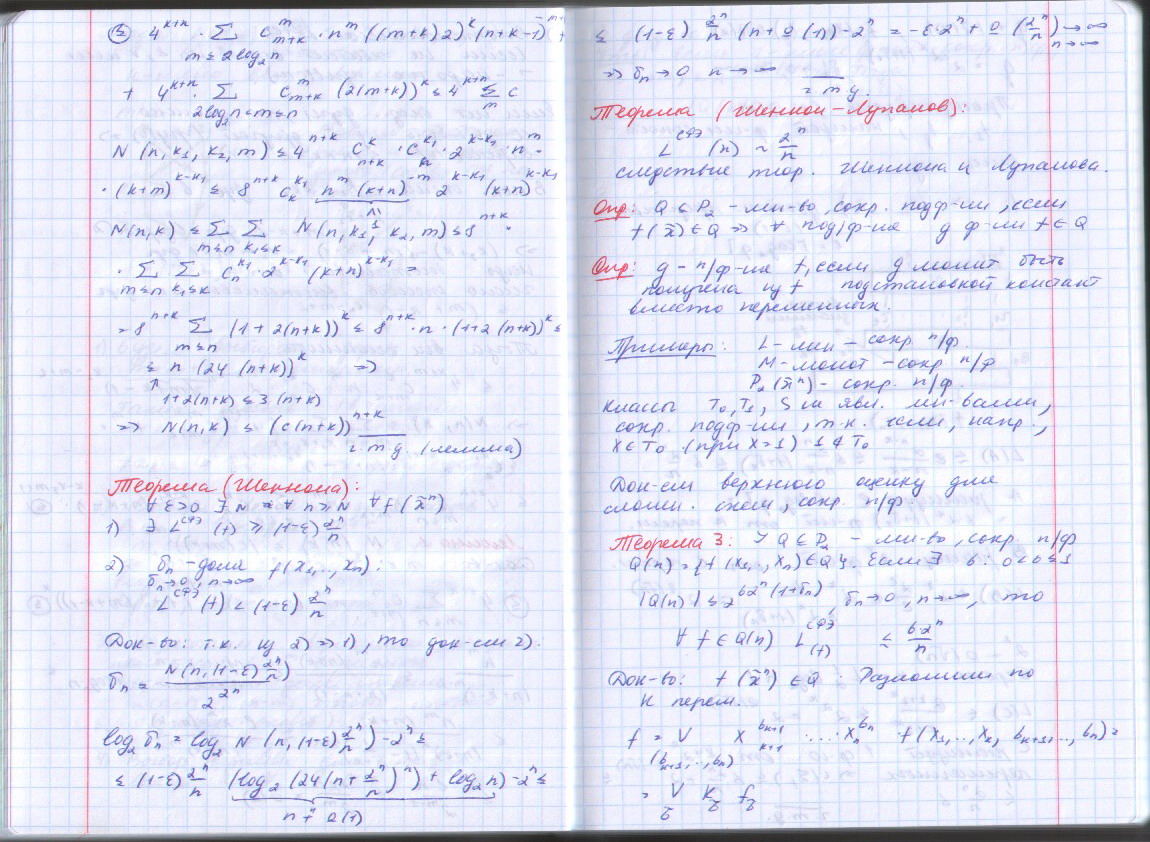 (≤) 4^{k+n} · Σ_{m≤2log₂n} C^m_{m+k} · n^m ((m+k)2)^k (n+k-1)^{-m} +
+ 4^{k+n} · Σ_{2log₂n<m≤n} C^m_{m+k} (2(m+k))^k ≤ 4^{k+n} Σ_m C
N(n, k₁, k₂, m) ≤ 4^{n+k} C^k_{n+k} · C^{k₁}_k · 2^{k-k₁} · n^m ·
· (k+m)^{k-k₁} ≤ 8^{n+k} C^{k₁}_k n^m (k+n)^{-m} 2^{k-k₁} (k+n)^{k-k₁}
N(n,k) ≤ Σ_{m≤n} Σ_{k₁≤k} N(n, k₁, k₂, m) ≤ 8^{n+k} ·
· Σ_{m≤n} Σ_{k₁≤k} C^{k₁}_n · 2^{k-k₁} (k+n)^{k-k₁} =
= 8^{n+k} Σ_{m≤n} (1+2(n+k))^k ≤ 8^{n+k} · n · (1+2(n+k))^k ≤
≤ n (24 (n+k))^k ⇒
↑
1+2(n+k) ≤ 3(n+k)
⇒ N(n,k) ≤ (c(n+k))^{n+k}
ч.т.д. (лемма)
Теорема (Шеннона):
∀ ε>0 ∃ N ∀ n≥N ∀ f(x̃ⁿ)
1) ∃ L^{сфэ}(f) ≥ (1-ε) 2ⁿ/n
2) δₙ - доля f(x₁,..,xₙ):
δₙ→0, n→∞
L^{сфэ}(f) < (1-ε) 2ⁿ/n
Док-во: т.к. из 2) ⇒ 1), то док-ем 2).
δₙ = N(n, (1-ε) 2ⁿ/n) / 2^{2ⁿ}
log₂ δₙ = log₂ N (n, (1-ε) 2ⁿ/n) - 2ⁿ ≤
≤ (1-ε) 2ⁿ/n (log₂ (24(n+2ⁿ/n)ⁿ) + log₂ n) - 2ⁿ ≤
n + o(1)
≤ (1-ε) 2ⁿ/n (n + o(n)) - 2ⁿ = -ε·2ⁿ + o(2ⁿ/n) → ∞
n→∞
⇒ δₙ→0 n→∞
ч.т.д.
Теорема (Шеннон-Лупанов):
L^{сфэ}(n) ~ 2ⁿ/n
следствие теор. Шеннона и Лупанова.
Опр: Q ⊆ P₂ - мн-во, сохр. подф-ии, если
f(x̃) ∈ Q ⇒ ∀ под/ф-ия g ф-ии f ∈ Q
Опр: g - п/ф-ия f, если g может быть
получена из f подстановкой констант
вместо переменных.
Примеры: L - лин - сохр п/ф.
M - монот - сохр п/ф
P₂(x̃ⁿ) - сохр. п/ф.
Классы T₀, T₁, S не явл. мн-вами,
сохр. подф-ии, т.к. если, напр.,
x ∈ T₀ (при x=1) 1 ∉ T₀
Док-ем верхнюю оценку для
сложн. схем, сохр. п/ф.
Теорема 3: ] Q ⊆ P₂ - мн-во, сохр. п/ф
Q(n) = {f(x₁,..,xₙ) ∈ Q}. Если ∃ б: 0<б≤1
|Q(n)| ≤ 2^{б2ⁿ(1+δₙ)}, δₙ→0, n→∞, то
∀ f ∈ Q(n) L^{сфэ}(f) ≤ б·2ⁿ/n
Док-во: f(x̃ⁿ) ∈ Q. Разложим по
k перем.
f = V_{(b_{k+1},..,bₙ)} x_{k+1}^{b_{k+1}} ..... xₙ^{bₙ} f(x₁,..,x_k, b_{k+1},..,bₙ) =
= V_{b̃} K_{b̃} f_{b̃}